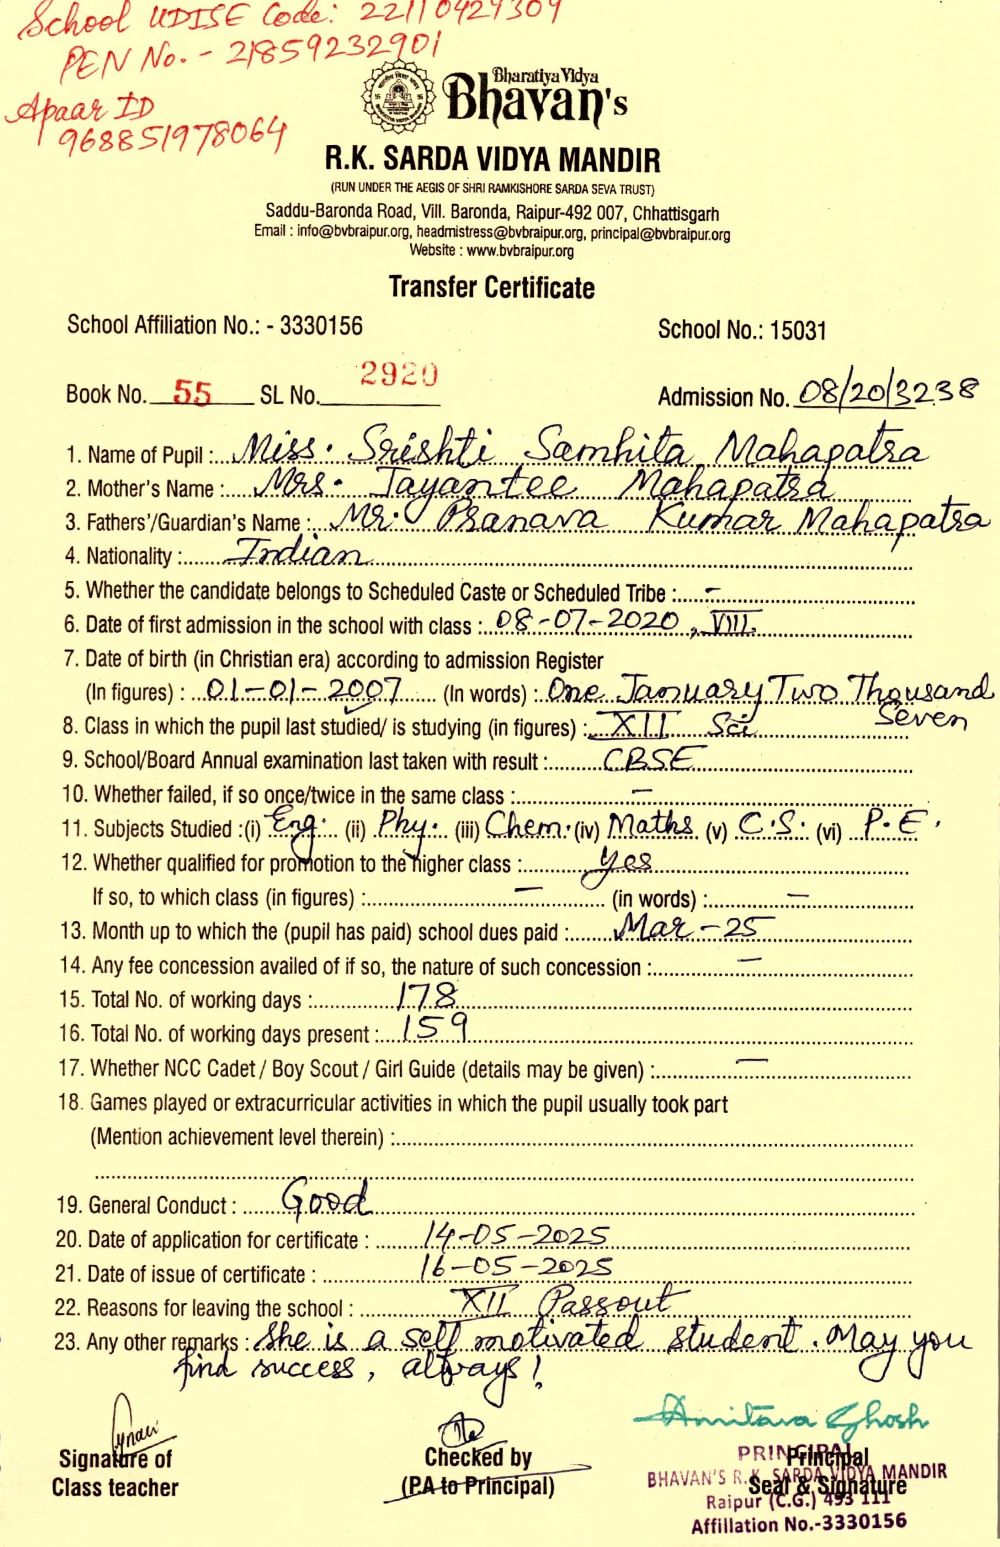 School UDISE Code: 22110429309
PEN No. - 21859232901
Apaar ID
968851978064
Bharatiya Vidya
Bhavan's
R.K. SARDA VIDYA MANDIR
(RUN UNDER THE AEGIS OF SHRI RAMKISHORE SARDA SEVA TRUST)
Saddu-Baronda Road, Vill. Baronda, Raipur-492 007, Chhattisgarh
Email : info@bvbraipur.org, headmistress@bvbraipur.org, principal@bvbraipur.org
Website : www.bvbraipur.org
Transfer Certificate
School Affiliation No.: - 3330156 School No.: 15031
Book No. 55 SL No. 2920 Admission No. 08/20/3238
1. Name of Pupil : Miss. Srishti Samhita Mahapatra
2. Mother's Name : Mrs. Jayantee Mahapatra
3. Fathers'/Guardian's Name : Mr. Pranava Kumar Mahapatra
4. Nationality : Indian
5. Whether the candidate belongs to Scheduled Caste or Scheduled Tribe : -
6. Date of first admission in the school with class : 08-07-2020, VIII.
7. Date of birth (in Christian era) according to admission Register
(In figures) : 01-01-2007 (In words) : One January Two Thousand
Seven
8. Class in which the pupil last studied/ is studying (in figures) : XII Sci
9. School/Board Annual examination last taken with result : CBSE
10. Whether failed, if so once/twice in the same class : -
11. Subjects Studied :(i) Eng. (ii) Phy. (iii) Chem. (iv) Maths (v) C.S. (vi) P.E.
12. Whether qualified for promotion to the higher class : Yes
If so, to which class (in figures) : - (in words) : -
13. Month up to which the (pupil has paid) school dues paid : Mar-25
14. Any fee concession availed of if so, the nature of such concession : -
15. Total No. of working days : 178
16. Total No. of working days present : 159
17. Whether NCC Cadet / Boy Scout / Girl Guide (details may be given) : -
18. Games played or extracurricular activities in which the pupil usually took part
(Mention achievement level therein) :
19. General Conduct : Good
20. Date of application for certificate : 14-05-2025
21. Date of issue of certificate : 16-05-2025
22. Reasons for leaving the school : XII Passout
23. Any other remarks : She is a self motivated student. May you
find success, always!
Amitava Ghosh
Signature of Checked by Principal
Class teacher (P.A to Principal) Seal & Signature
PRINCIPAL
BHAVAN'S R.K. SARDA VIDYA MANDIR
Raipur (C.G.) 493 111
Affillation No.-3330156